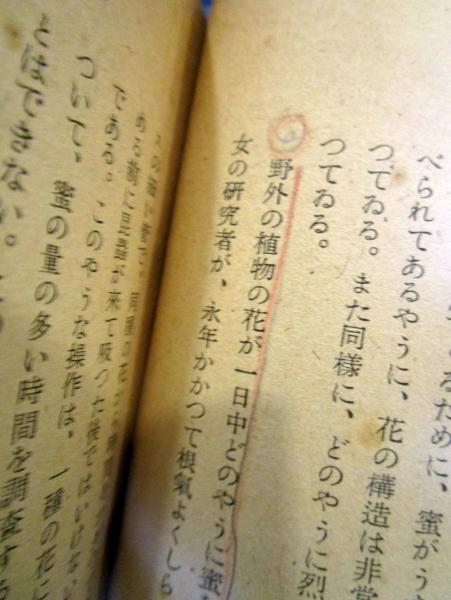 るために、蜜がう
べられてあるやうに、花の構造は非常
つてゐる。また同様に、どのやうに烈
つてゐる。
野外の植物の花が一日中どのやうに蜜
女の研究者が、永年かかつて根氣よくしら
める前に昆蟲が來て吸つた後ではいけない
である。このやうな操作は、一種の花に
ついて、蜜の量の多い時間を調査する
とはできない。